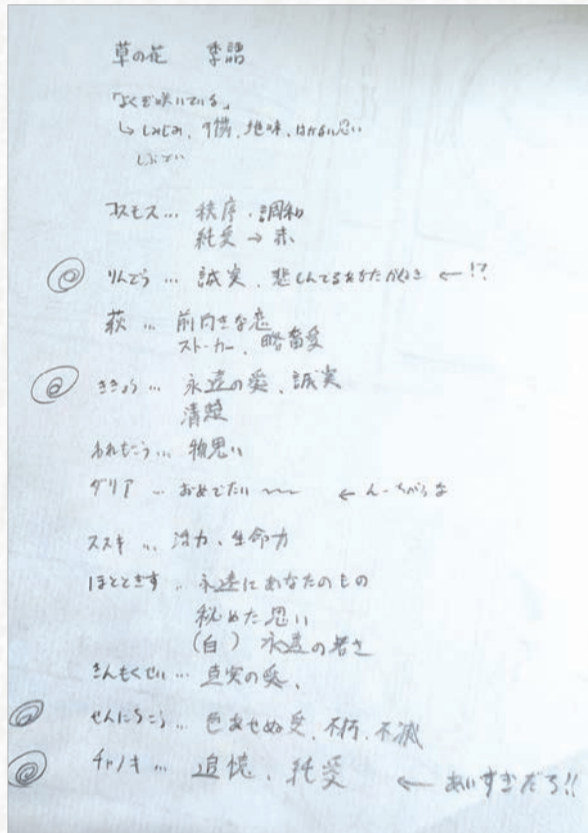 草の花　季語
「よくぞ咲いている」
↳ しみじみ、可憐、地味、はかない思い
コスモス… 秩序・調和
純愛 → 赤
◎ りんどう… 誠実、悲しんでるあなたが好き ← !?
萩 … 前向きな恋
ストーカー、略奪愛
◎ ききょう… 永遠の愛、誠実
清楚
われもこう… 物思い
ダリア … おめでたい 〜〜 ← んーちがうな
ススキ … 活力、生命力
ほととぎす … 永遠にあなたのもの
秘めた思い
(白) 永遠の若さ
きんもくせい… 真実の愛、
◎ せんにちこう… 色あせぬ愛、不朽、不滅
◎ チャノキ… 追憶、純愛 ← すぎだろ!!